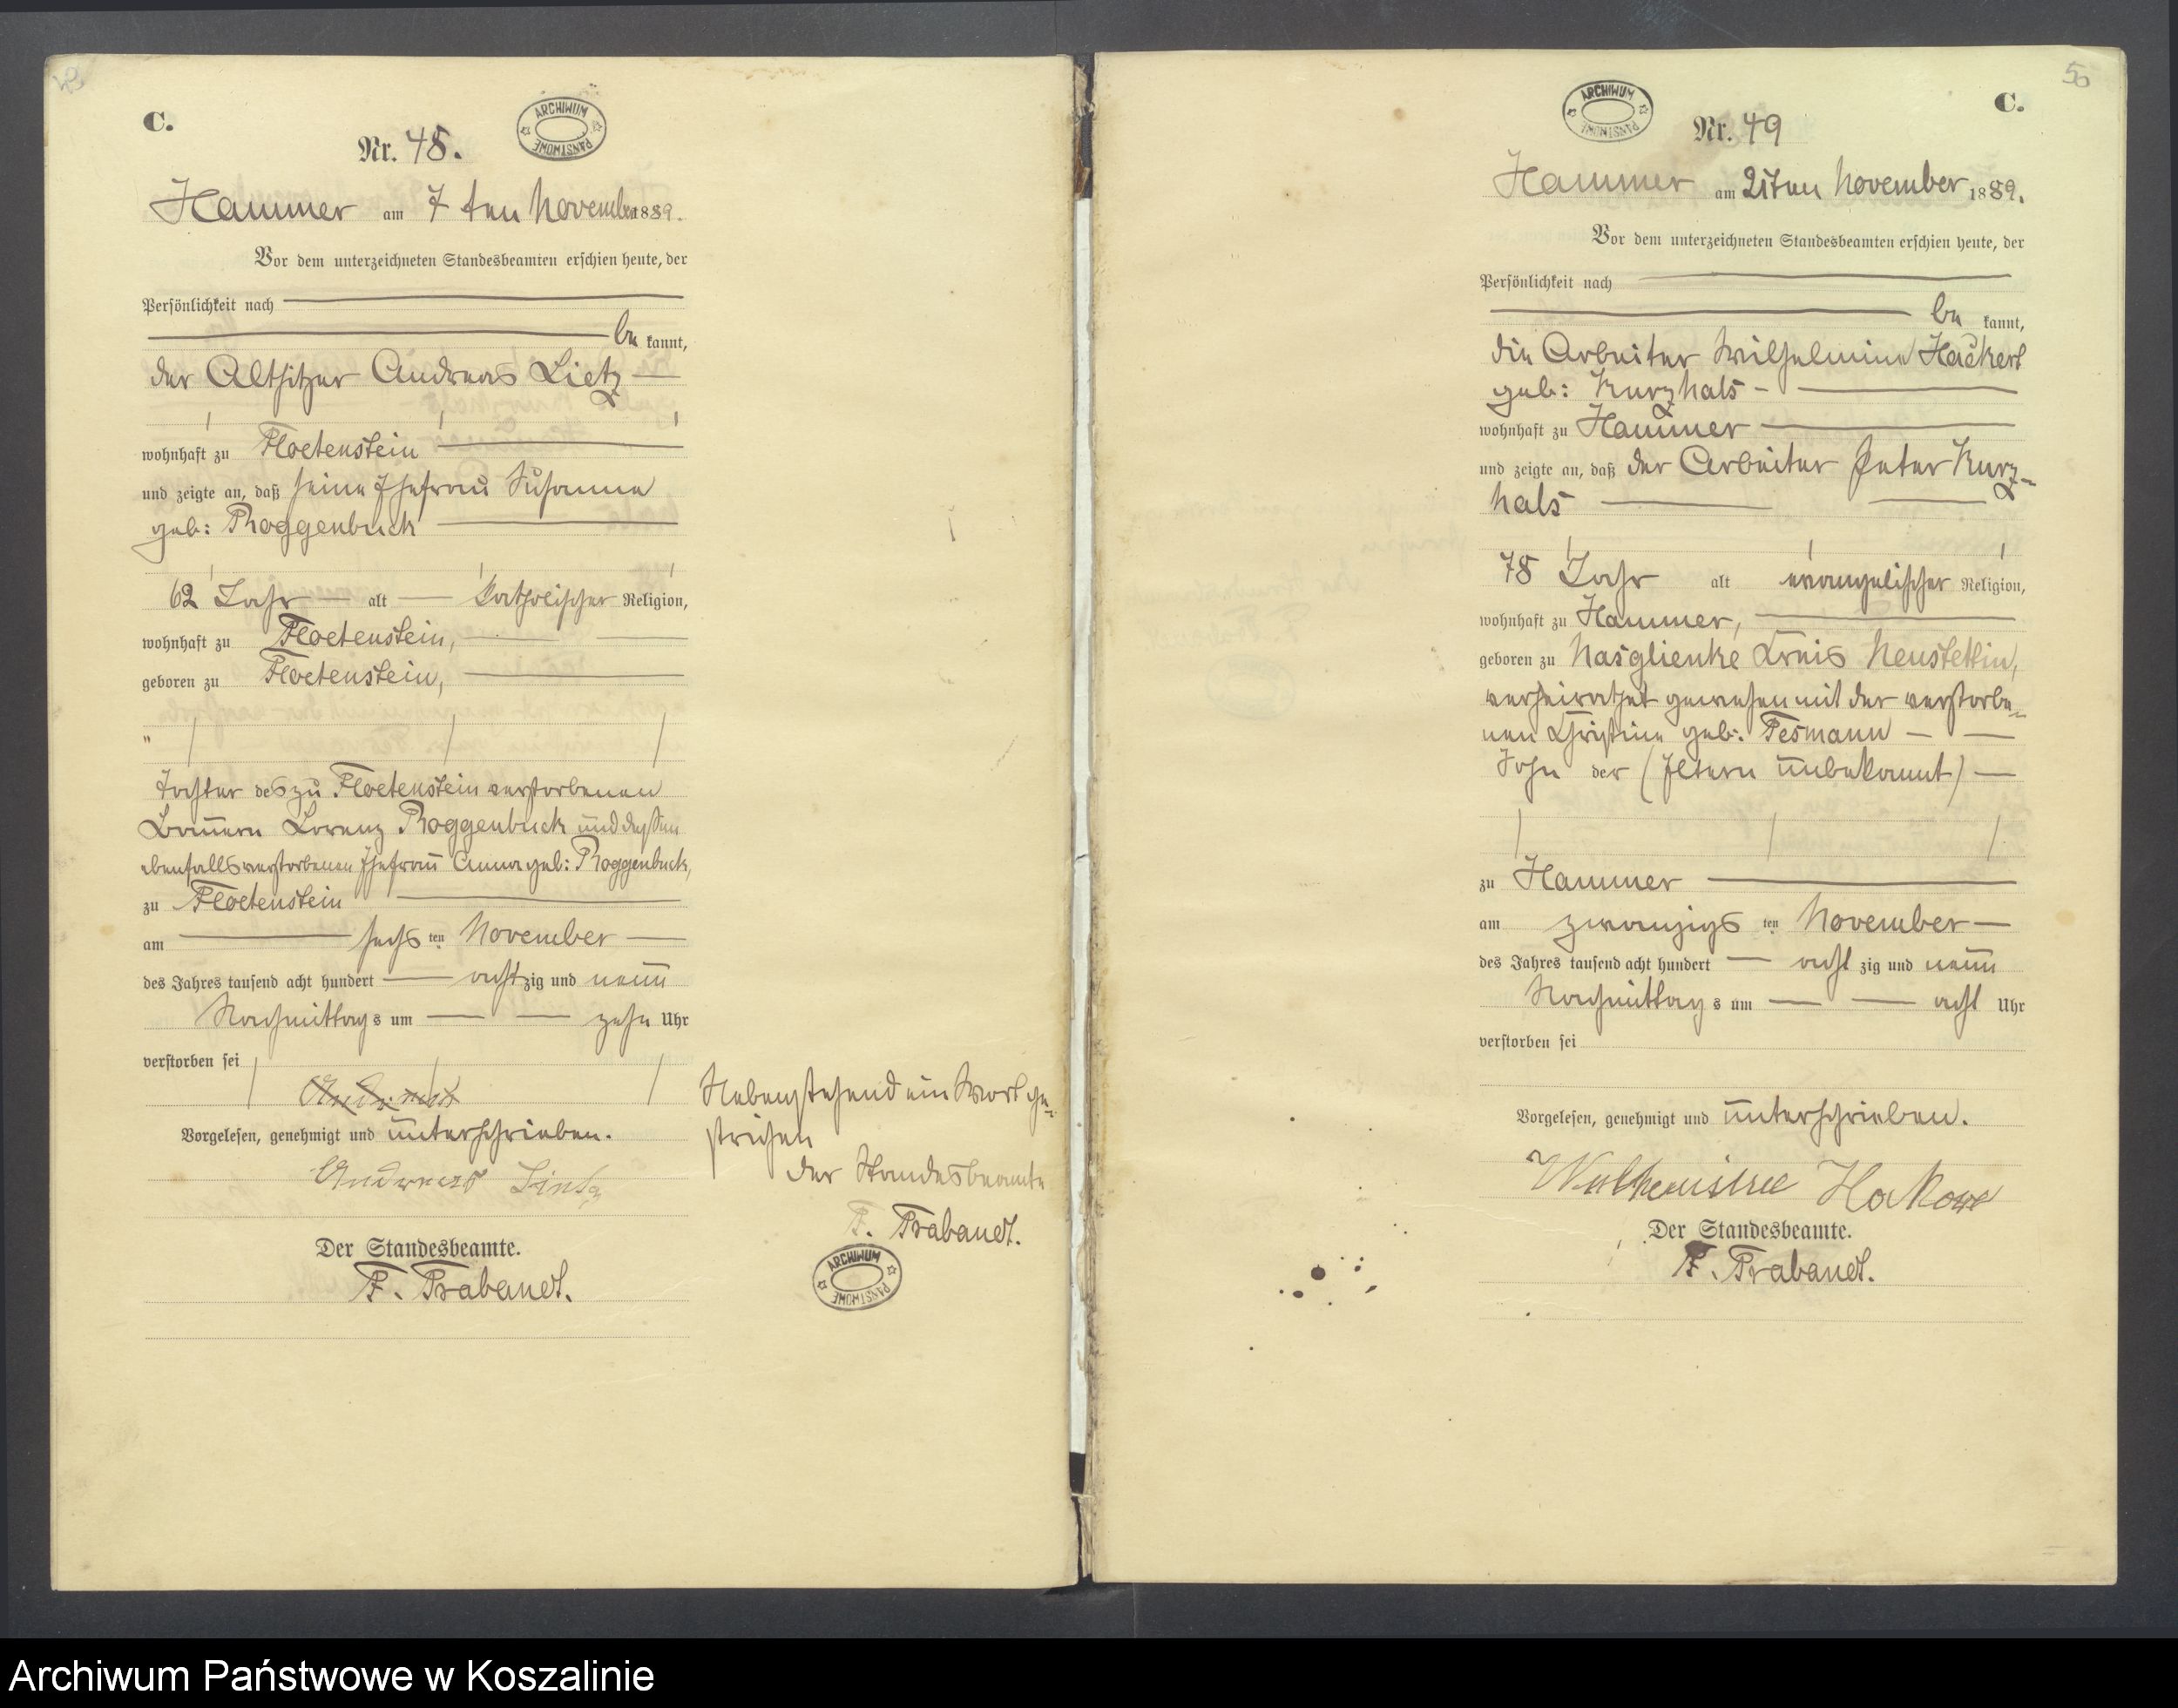 C.
Nr. 48.
ARCHIWUM PAŃSTWOWE
Hammer am 7 ten November 1889.
Vor dem unterzeichneten Standesbeamten erschien heute, der
Persönlichkeit nach
be kannt,
der Altsitzer Andreas Lietz
wohnhaft zu Floetenstein
und zeigte an, daß seine Ehefrau Susanna
geb: Roggenbuck
62 Jahr alt Katholischer Religion,
wohnhaft zu Floetenstein,
geboren zu Floetenstein,
Tochter des zu Floetenstein verstorbenen
Bauern Lorenz Roggenbuck und dessen
ebenfalls verstorbenen Ehefrau Anna geb: Roggenbuck,
zu Floetenstein
am sechs ten November
des Jahres tausend acht hundert acht zig und neun
Nachmittag s um zehn Uhr
verstorben sei
Vorgelesen, genehmigt und unterschrieben.
Andreas Lietz
Der Standesbeamte.
F. Trabandt.
Nebenstehend ein Wort ge-
strichen
der Standesbeamte
F. Trabandt.
ARCHIWUM PAŃSTWOWE
50
C.
ARCHIWUM PAŃSTWOWE
Nr. 49
Hammer am 21ten November 1889.
Vor dem unterzeichneten Standesbeamten erschien heute, der
Persönlichkeit nach
be kannt,
die Arbeiter Wilhelmine Hackert
geb: Kurzhals
wohnhaft zu Hammer
und zeigte an, daß der Arbeiter Peter Kurz-
hals
78 Jahr alt evangelischer Religion,
wohnhaft zu Hammer,
geboren zu Nasglienke Kreis Neustettin,
verheirathet gewesen mit der verstorbe-
nen Christine geb: Tesmann
Sohn der (Eltern unbekannt)
zu Hammer
am zwanzigs ten November
des Jahres tausend acht hundert acht zig und neun
Nachmittag s um acht Uhr
verstorben sei
Vorgelesen, genehmigt und unterschrieben.
Der Standesbeamte.
F. Trabandt.
Archiwum Państwowe w Koszalinie